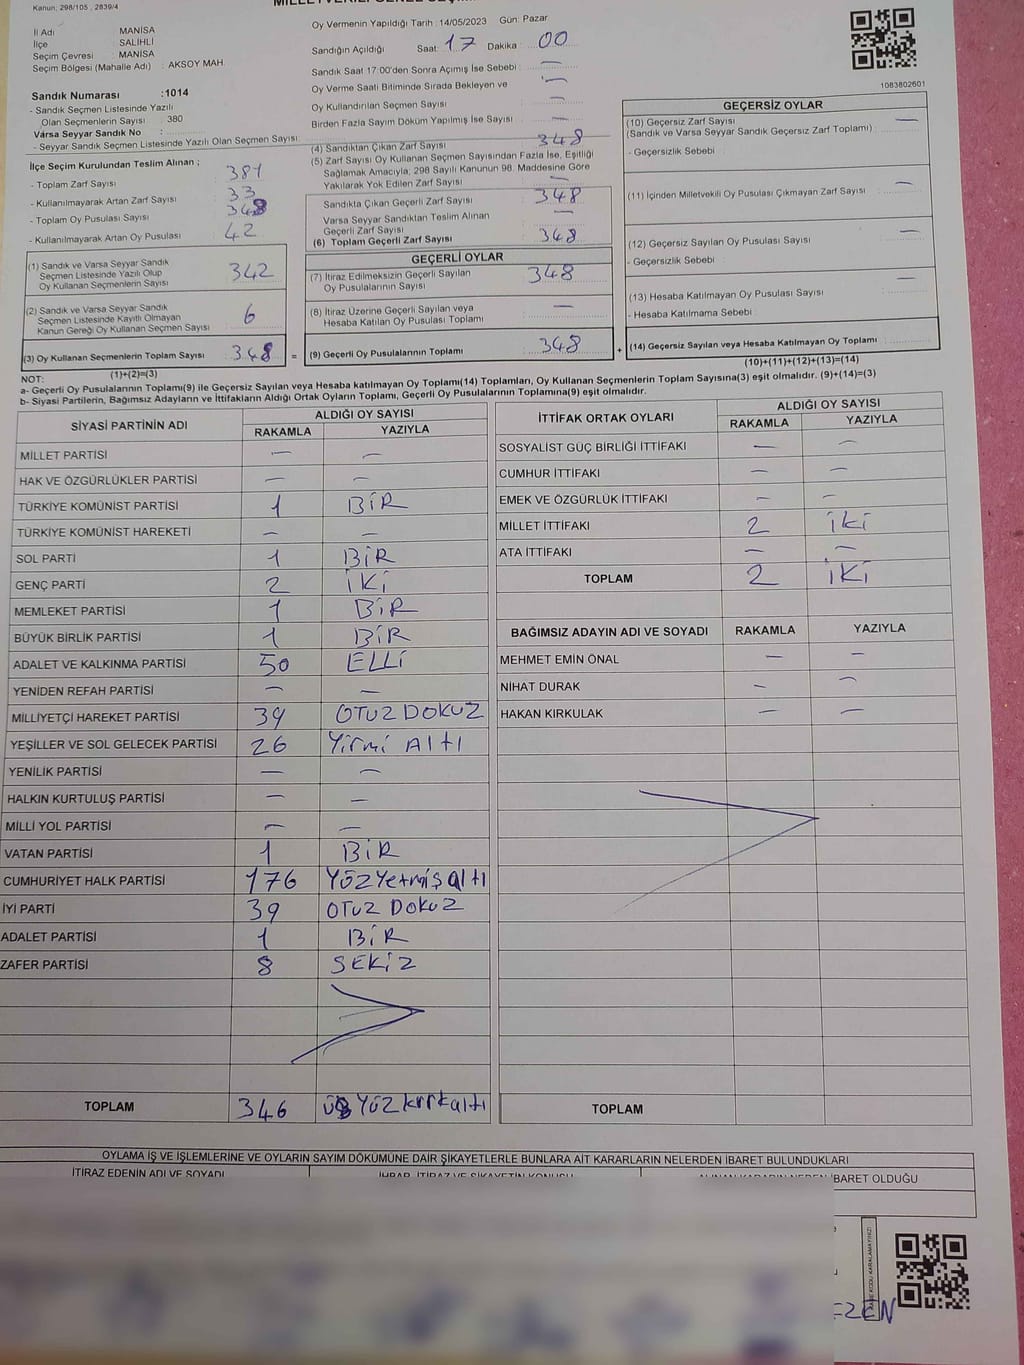 Kanun: 298/105 , 2839/4
İl Adı MANİSA
İlçe SALİHLİ
Seçim Çevresi MANİSA
Seçim Bölgesi (Mahalle Adı) : AKSOY MAH.
Sandık Numarası :1014
- Sandık Seçmen Listesinde Yazılı
Olan Seçmenlerin Sayısı : 380
Varsa Seyyar Sandık No :
- Seyyar Sandık Seçmen Listesinde Yazılı Olan Seçmen Sayısı:
Oy Vermenin Yapıldığı Tarih : 14/05/2023 Gün: Pazar
Sandığın Açıldığı Saat: 17 Dakika : 00
Sandık Saat 17:00'den Sonra Açımış İse Sebebi : —
Oy Verme Saati Bitiminde Sırada Bekleyen ve
Oy Kullandırılan Seçmen Sayısı : —
Birden Fazla Sayım Döküm Yapılmış İse Sayısı : —
1083802601
İlçe Seçim Kurulundan Teslim Alınan ;
- Toplam Zarf Sayısı : 381
- Kullanılmayarak Artan Zarf Sayısı : 33
- Toplam Oy Pusulası Sayısı
- Kullanılmayarak Artan Oy Pusulası : 42
(1) Sandık ve Varsa Seyyar Sandık
Seçmen Listesinde Yazılı Olup
Oy Kullanan Seçmenlerin Sayısı 342
(2) Sandık ve Varsa Seyyar Sandık
Seçmen Listesinde Kayıtlı Olmayan
Kanun Gereği Oy Kullanan Seçmen Sayısı 6
(3) Oy Kullanan Seçmenlerin Toplam Sayısı 348 =
(1)+(2)=(3)
(4) Sandıktan Çıkan Zarf Sayısı 348
(5) Zarf Sayısı Oy Kullanan Seçmen Sayısından Fazla İse, Eşitliği
Sağlamak Amacıyla, 298 Sayılı Kanunun 98. Maddesine Göre
Yakılarak Yok Edilen Zarf Sayısı —
Sandıkta Çıkan Geçerli Zarf Sayısı 348
Varsa Seyyar Sandıktan Teslim Alınan
Geçerli Zarf Sayısı —
(6) Toplam Geçerli Zarf Sayısı 348
GEÇERLİ OYLAR
(7) İtiraz Edilmeksizin Geçerli Sayılan
Oy Pusulalarının Sayısı 348
(8) İtiraz Üzerine Geçerli Sayılan veya
Hesaba Katılan Oy Pusulası Toplamı —
(9) Geçerli Oy Pusulalarının Toplamı 348 +
GEÇERSİZ OYLAR
(10) Geçersiz Zarf Sayısı —
(Sandık ve Varsa Seyyar Sandık Geçersiz Zarf Toplamı)
- Geçersizlik Sebebi :
(11) İçinden Milletvekili Oy Pusulası Çıkmayan Zarf Sayısı —
(12) Geçersiz Sayılan Oy Pusulası Sayısı —
- Geçersizlik Sebebi :
(13) Hesaba Katılmayan Oy Pusulası Sayısı —
- Hesaba Katılmama Sebebi :
(14) Geçersiz Sayılan veya Hesaba Katılmayan Oy Toplamı
(10)+(11)+(12)+(13)=(14)
NOT:
a- Geçerli Oy Pusulalarının Toplamı(9) ile Geçersiz Sayılan veya Hesaba katılmayan Oy Toplamı(14) Toplamları, Oy Kullanan Seçmenlerin Toplam Sayısına(3) eşit olmalıdır. (9)+(14)=(3)
b- Siyasi Partilerin, Bağımsız Adayların ve İttifakların Aldığı Ortak Oyların Toplamı, Geçerli Oy Pusulalarının Toplamına(9) eşit olmalıdır.
SİYASİ PARTİNİN ADI ALDIĞI OY SAYISI
RAKAMLA YAZIYLA
MİLLET PARTİSİ — —
HAK VE ÖZGÜRLÜKLER PARTİSİ — —
TÜRKİYE KOMÜNİST PARTİSİ 1 BİR
TÜRKİYE KOMÜNİST HAREKETİ — —
SOL PARTİ 1 BİR
GENÇ PARTİ 2 İKİ
MEMLEKET PARTİSİ 1 BİR
BÜYÜK BİRLİK PARTİSİ 1 BİR
ADALET VE KALKINMA PARTİSİ 50 ELLİ
YENİDEN REFAH PARTİSİ — —
MİLLİYETÇİ HAREKET PARTİSİ 39 OTUZ DOKUZ
YEŞİLLER VE SOL GELECEK PARTİSİ 26 Yirmi Altı
YENİLİK PARTİSİ — —
HALKIN KURTULUŞ PARTİSİ — —
MİLLİ YOL PARTİSİ — —
VATAN PARTİSİ 1 BİR
CUMHURİYET HALK PARTİSİ 176 YÜZ Yetmiş altı
İYİ PARTİ 39 OTUZ DOKUZ
ADALET PARTİSİ 1 BİR
ZAFER PARTİSİ 8 SEKİZ
TOPLAM 346 üç YÜZ kırk altı
İTTİFAK ORTAK OYLARI ALDIĞI OY SAYISI
RAKAMLA YAZIYLA
SOSYALİST GÜÇ BİRLİĞİ İTTİFAKI — —
CUMHUR İTTİFAKI — —
EMEK VE ÖZGÜRLÜK İTTİFAKI — —
MİLLET İTTİFAKI 2 İKİ
ATA İTTİFAKI — —
TOPLAM 2 İKİ
BAĞIMSIZ ADAYIN ADI VE SOYADI RAKAMLA YAZIYLA
MEHMET EMİN ÖNAL — —
NİHAT DURAK — —
HAKAN KIRKULAK — —
TOPLAM
OYLAMA İŞ VE İŞLEMLERİNE VE OYLARIN SAYIM DÖKÜMÜNE DAİR ŞİKAYETLERLE BUNLARA AİT KARARLARIN NELERDEN İBARET BULUNDUKLARI
İTİRAZ EDENİN ADI VE SOYADI İHBAR, İTİRAZ VE ŞİKAYETİN KONUSU ALINAN KARARIN NEDEN İBARET OLDUĞU